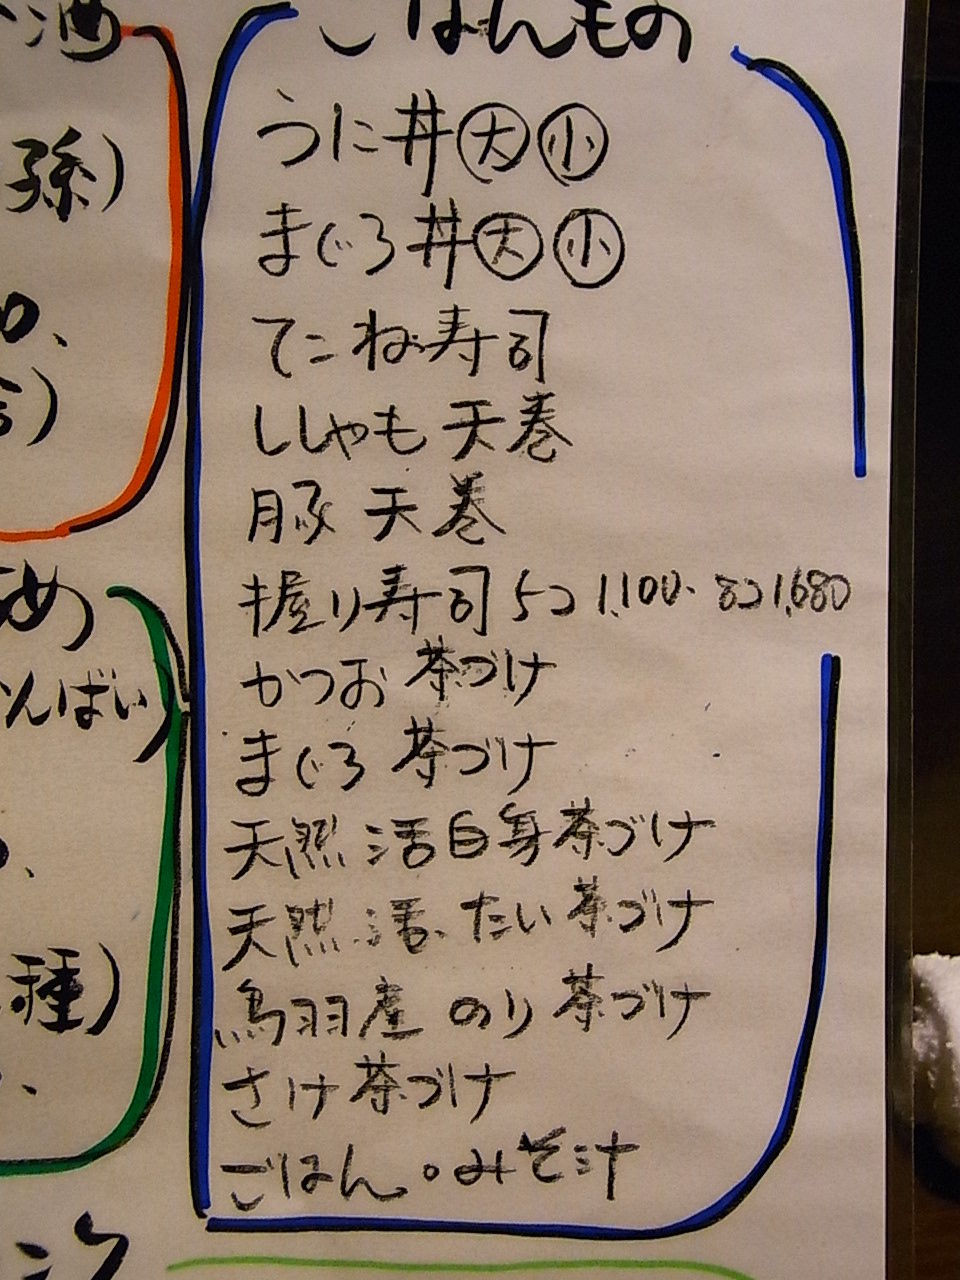 ごはんもの
うに丼 大 小
まぐろ丼 大 小
てこね寿司
ししゃも 天巻
豚 天巻
握り寿司 5コ 1,100. 8コ 1,680
かつお 茶づけ
まぐろ 茶づけ
天然 活白身茶づけ
天然 活 たい茶づけ
鳥羽産 のり茶づけ
さけ茶づけ
ごはん。みそ汁
酒
孫)
め
んばい)
種)